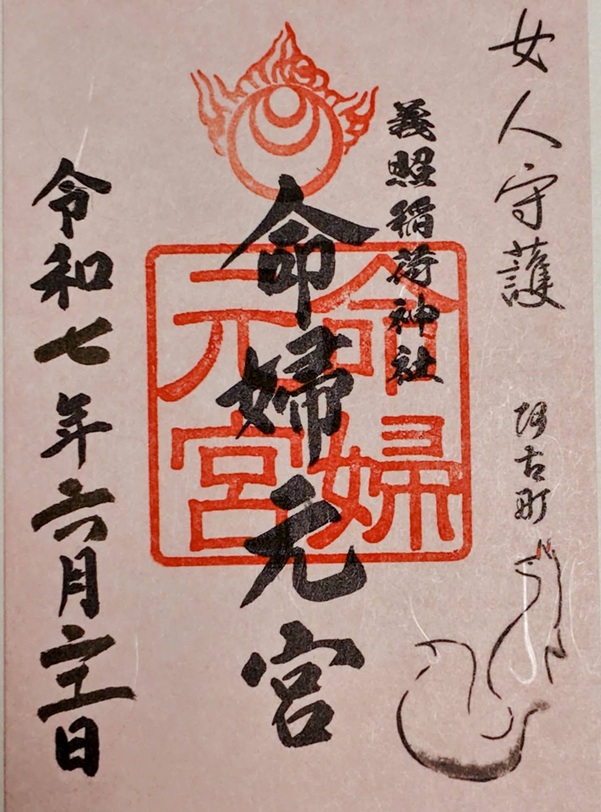 女人守護
阿古町
義照稲荷神社
命婦元宮
命婦
元宮
令和七年六月二十一日